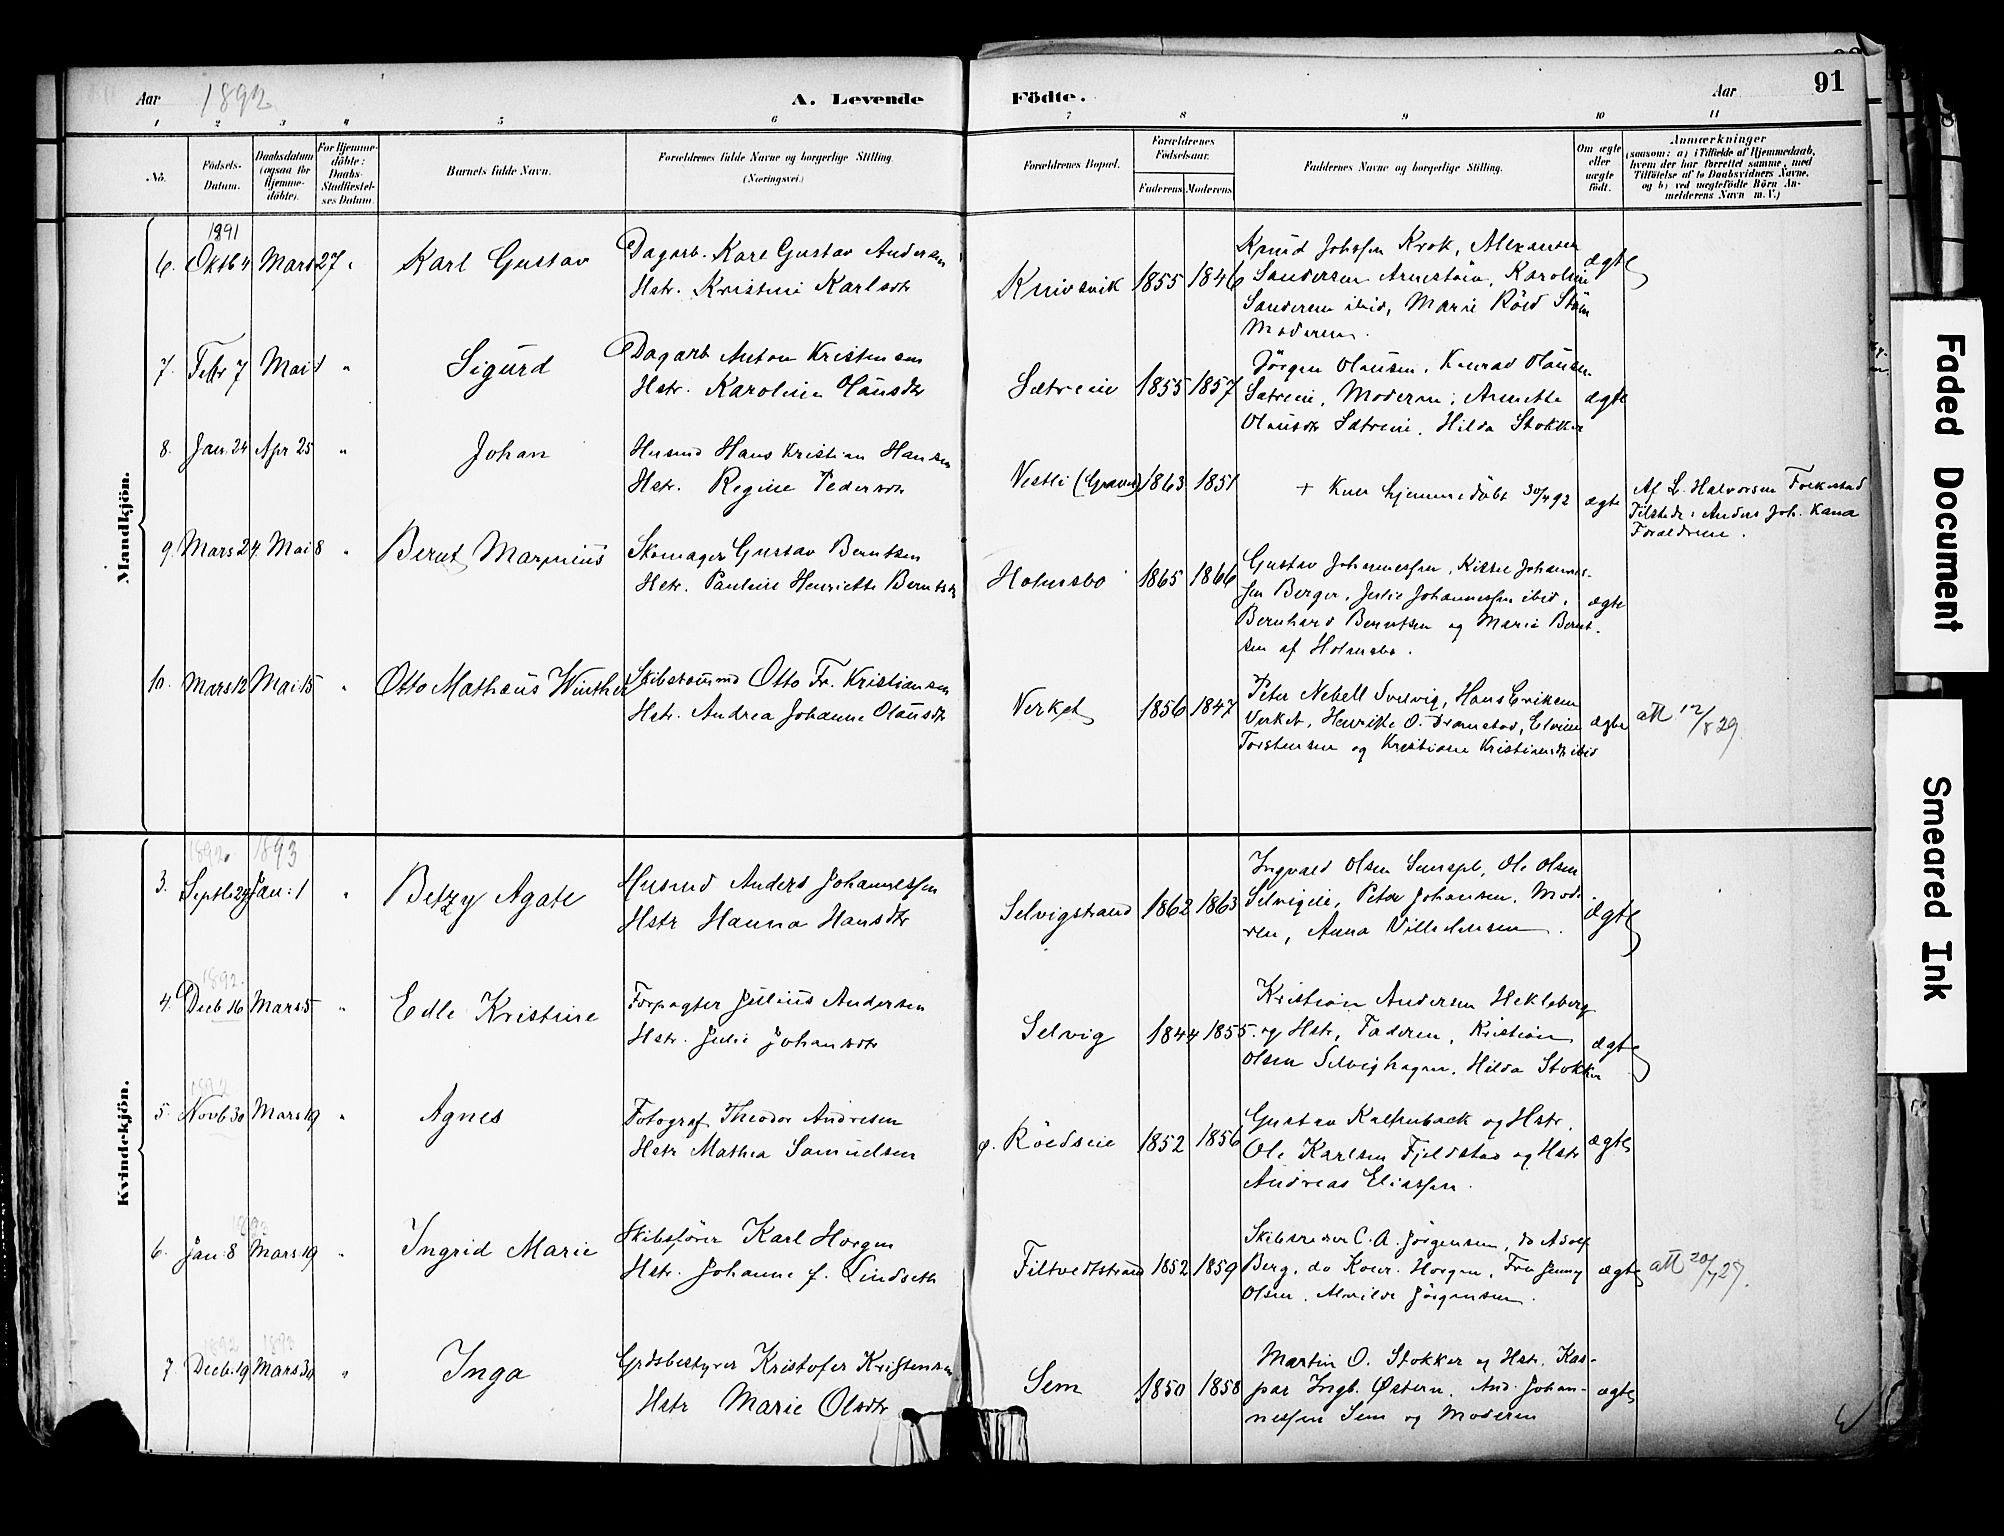 Aar 1892 A. Levende Födte. Aar 91
1 2 3 4 5 6 7 8 9 10 11
No. Födsels-Datum. Daabsdatum (ogsaa for Hjemme-döbte). For Hjemme-döbte: Daabs-Stadfæstel-ses Datum. Barnets fulde Navn. Forældrenes fulde Navne og borgerlige Stilling. (Næringsvei.) Forældrenes Bopæl. Forældrenes Födselsaar. Faderens Moderens Faddernes Navne og borgerlige Stilling. Om ægte eller uægte födt. Anmærkninger (saasom: a) i Tilfælde af Hjemmedaab, hvem der har forrettet samme, med Tilföielse af to Daabsvidners Navne, og b) ved uægtefödte Börn An-melderens Navn m. V.)
Mandkjön.
1891
6. Oktb 4 Mars 27 " Karl Gustav
Dagarb. Karl Gustav Andersen
Hstr. Kristine Karlsdtr
Knivsvik 1855 1846
Knud Johssen Krok, Alexander
Sandersen Arnestøin, Karoline
Sandersen ibid, Marie Röed Støin
Moderen.
ægte
7. Febr 7 Mai 1 " Sigurd
Dagarb Anton Kristensen
Hstr. Karoline Olausdtr
Sætreeie 1855 1857
Jörgen Olausen, Konrad Olausen
Sætreie, Moderen, Annette
Olausdtr Sætreie, Hilda Stokker
ægte
8. Jan. 24 Apr 25 " Johan
Husmd Hans Kristian Hansen
Hstr. Regine Pedersdtr
Vestli (Graver) 1863 1851
+ Kun hjemmedöbt 30/4 92
ægte
Af L. Halvorsen Folkestad
Tilstede: Anders Joh. Kana
Forældrene.
9. Mars 24 Mai 8 " Bernt Marinius
Skomager Gustav Berntsen
Hstr. Pauline Henriette Berntsdtr
Holmsbo 1865 1866
Gustav Johannessen, Kisse Johannes-
sen Berger, Julie Johannessen ibid,
Bernhard Berntsen og Marie Bernt-
sen af Holmsbo.
ægte
10. Mars 12 Mai 15 " Otto Mathæus Winther
Skibstömmd Otto Fr. Kristiansen
Hstr. Andrea Johanne Olausdtr
Verket 1856 1847
Peter Nebell Svelvig, Hans Eriksen
Verket, Henrikke O. Tronstad, Elvine
Torstensen og Kristiane Kristiansdtr ibid
ægte att 12/8 29.
Kvindekjön.
1892 1893
3. Septb 29 Jan: 1 " Betzy Agate
Husmd Anders Johannessen
Hstr Hanna Hansdtr
Selvigstrand 1862 1863
Ingvald Olsen Semspl, Ole Olsen
Selvigeie, Peter Johansen, Mod-
ren, Anna Vilhelmsen.
ægte
1892.
4. Decb 16 Mars 5 " Edle Kristine
Forpagter Julius Andersen
Hstr. Julie Johansdtr
Selvig 1844 1855
Kristian Andersen Hekleberg
og Hstr, Faderen, Kristian
Olsen Selvighagen, Hilda Stokker
ægte
1892
5. Novb 30 Mars 19 " Agnes
Fotograf Theodor Andresen
Hstr Mathea Samuelsen
p. Röedseie 1852 1856
Gustav Kaltenback og Hstr.
Ole Karlsen Fjeldstad og Hstr
Andreas Eliassen.
ægte
1893
6. Jan: 8 Mars 19 " Ingrid Marie
Skibsförer Karl Horgen
Hstr. Johanne f. Lindseth
Filtvedtstrand 1852 1859
Skibsreder C. A. Jörgensen, do Adolf
Berg, do Konr. Horgen, Fru Jenny
Olsen, Alvilde Jörgensen.
ægte att 20/7 27.
1892 1893
7 Decb. 19 Mars 30 " Inga
Grdsbestyrer Kristofer Kristensen
Hstr Marie Olsdtr
Sem 1850 1858
Martin O. Stokker og Hstr. Kas-
par Ingb. Østern, And. Johan-
nessen Sem og Moderen
ægte
Faded Document
Smeared Ink